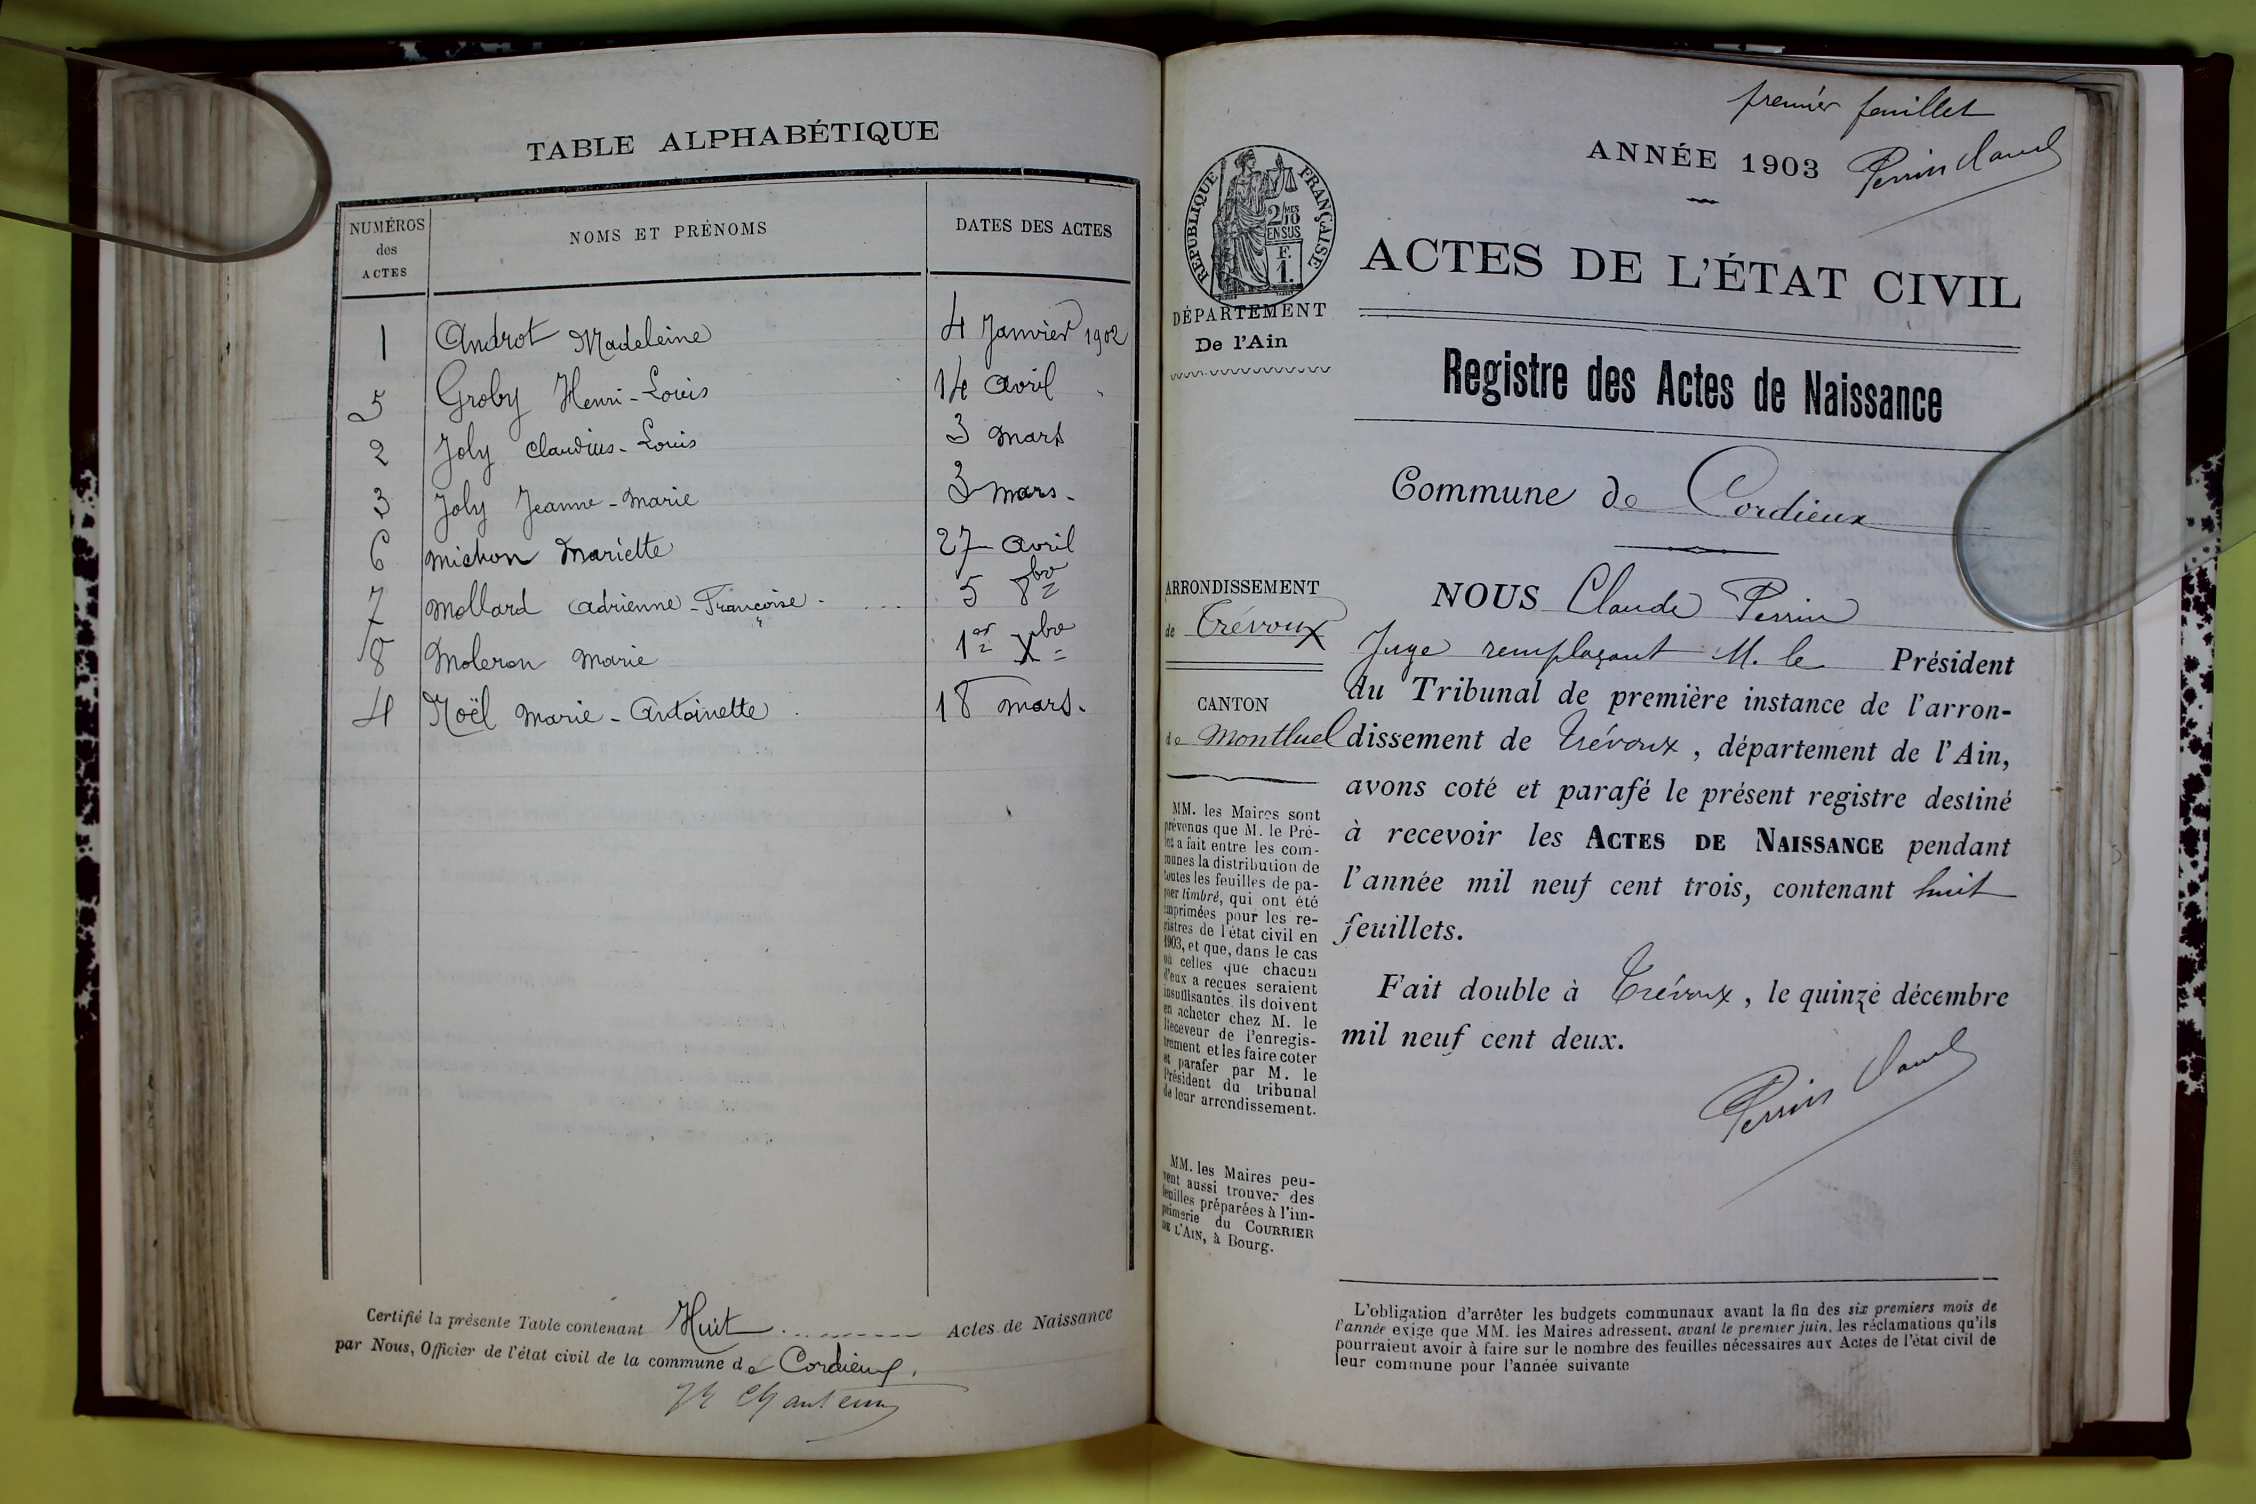 TABLE ALPHABÉTIQUE
NUMÉROS des ACTES NOMS ET PRÉNOMS DATES DES ACTES
1 Androt Madeleine 4 Janvier 1902
5 Groby Henri-Louis 14 avril "
2 Joly Claudius-Louis 3 mars
3 Joly Jeanne-Marie 3 mars-
6 Michon Mariette 27 avril
7 Mollard Adrienne-Françoise. 5 8bre
8 Moleron Marie 1er Xbre
4 Noël Marie-Antoinette 18 mars.
Certifié la présente Table contenant Huit Actes de Naissance
par Nous, Officier de l'état civil de la commune de Cordieux.
premier feuillet
ANNÉE 1903
RÉPUBLIQUE FRANÇAISE
2/10 MES
EN SUS
F.
1.
ACTES DE L'ÉTAT CIVIL
DÉPARTEMENT
De l'Ain
Registre des Actes de Naissance
Commune de Cordieux
ARRONDISSEMENT
de Trévoux
CANTON
de Montluel
MM. les Maires sont
prévenus que M. le Pré-
fet a fait entre les com-
munes la distribution de
toutes les feuilles de pa-
pier timbré, qui ont été
imprimées pour les re-
gistres de l'état civil en
1903, et que, dans le cas
où celles que chacun
d'eux a reçues seraient
insuffisantes, ils doivent
en acheter chez M. le
Receveur de l'enregis-
trement et les faire coter
et parafer par M. le
Président du tribunal
de leur arrondissement.
MM. les Maires peu-
vent aussi trouver des
feuilles préparées à l'im-
primerie du COURRIER
DE L'AIN, à Bourg.
NOUS Claude Perrin
Juge remplaçant M. le Président
du Tribunal de première instance de l'arron-
dissement de Trévoux, département de l'Ain,
avons coté et parafé le présent registre destiné
à recevoir les ACTES DE NAISSANCE pendant
l'année mil neuf cent trois, contenant huit
feuillets.
Fait double à Trévoux, le quinze décembre
mil neuf cent deux.
Perrin
L'obligation d'arrêter les budgets communaux avant la fin des six premiers mois de
l'année exige que MM. les Maires adressent, avant le premier juin, les réclamations qu'ils
pourraient avoir à faire sur le nombre des feuilles nécessaires aux Actes de l'état civil de
leur commune pour l'année suivante